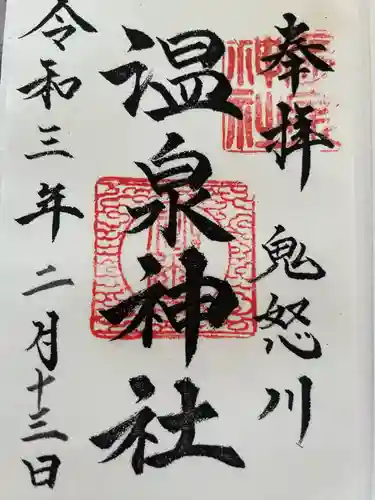 奉拝 鬼怒川
温泉神社
令和三年二月十三日